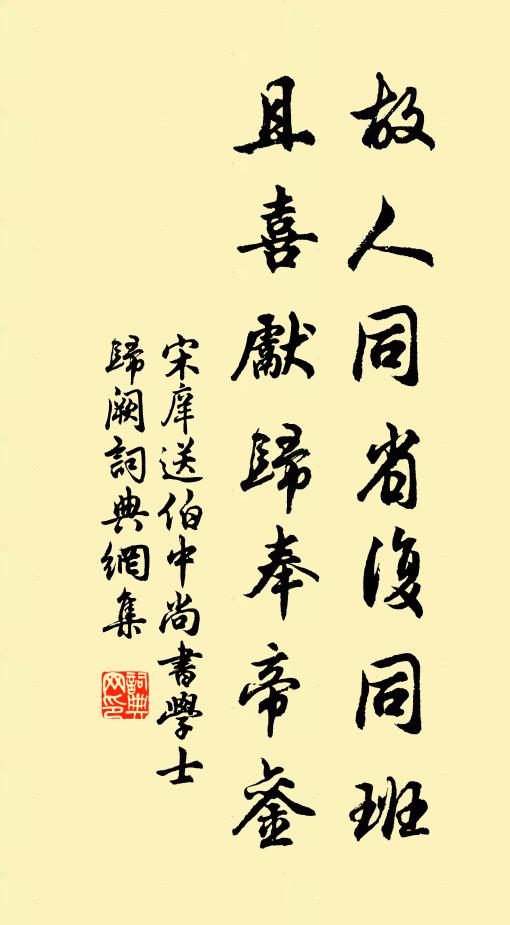 故人同省復同班
且喜獻歸奉帝鑾
宋庠送伯中尚書學士
歸闕詞典網集
詞典
网印